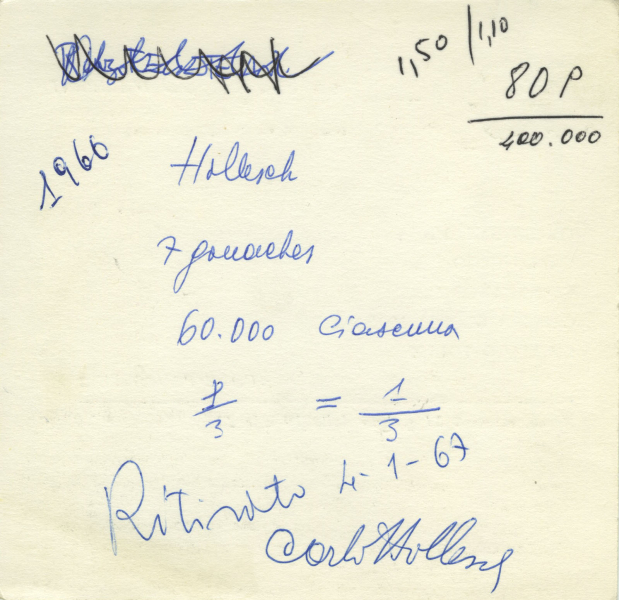 1,50 / 1,10
80 P
400.000
1960
Hollesch
7 gouaches
60.000 ciascuna
1/3 = 1/3
Ritirato 4-1-67
Carlo Hollesch